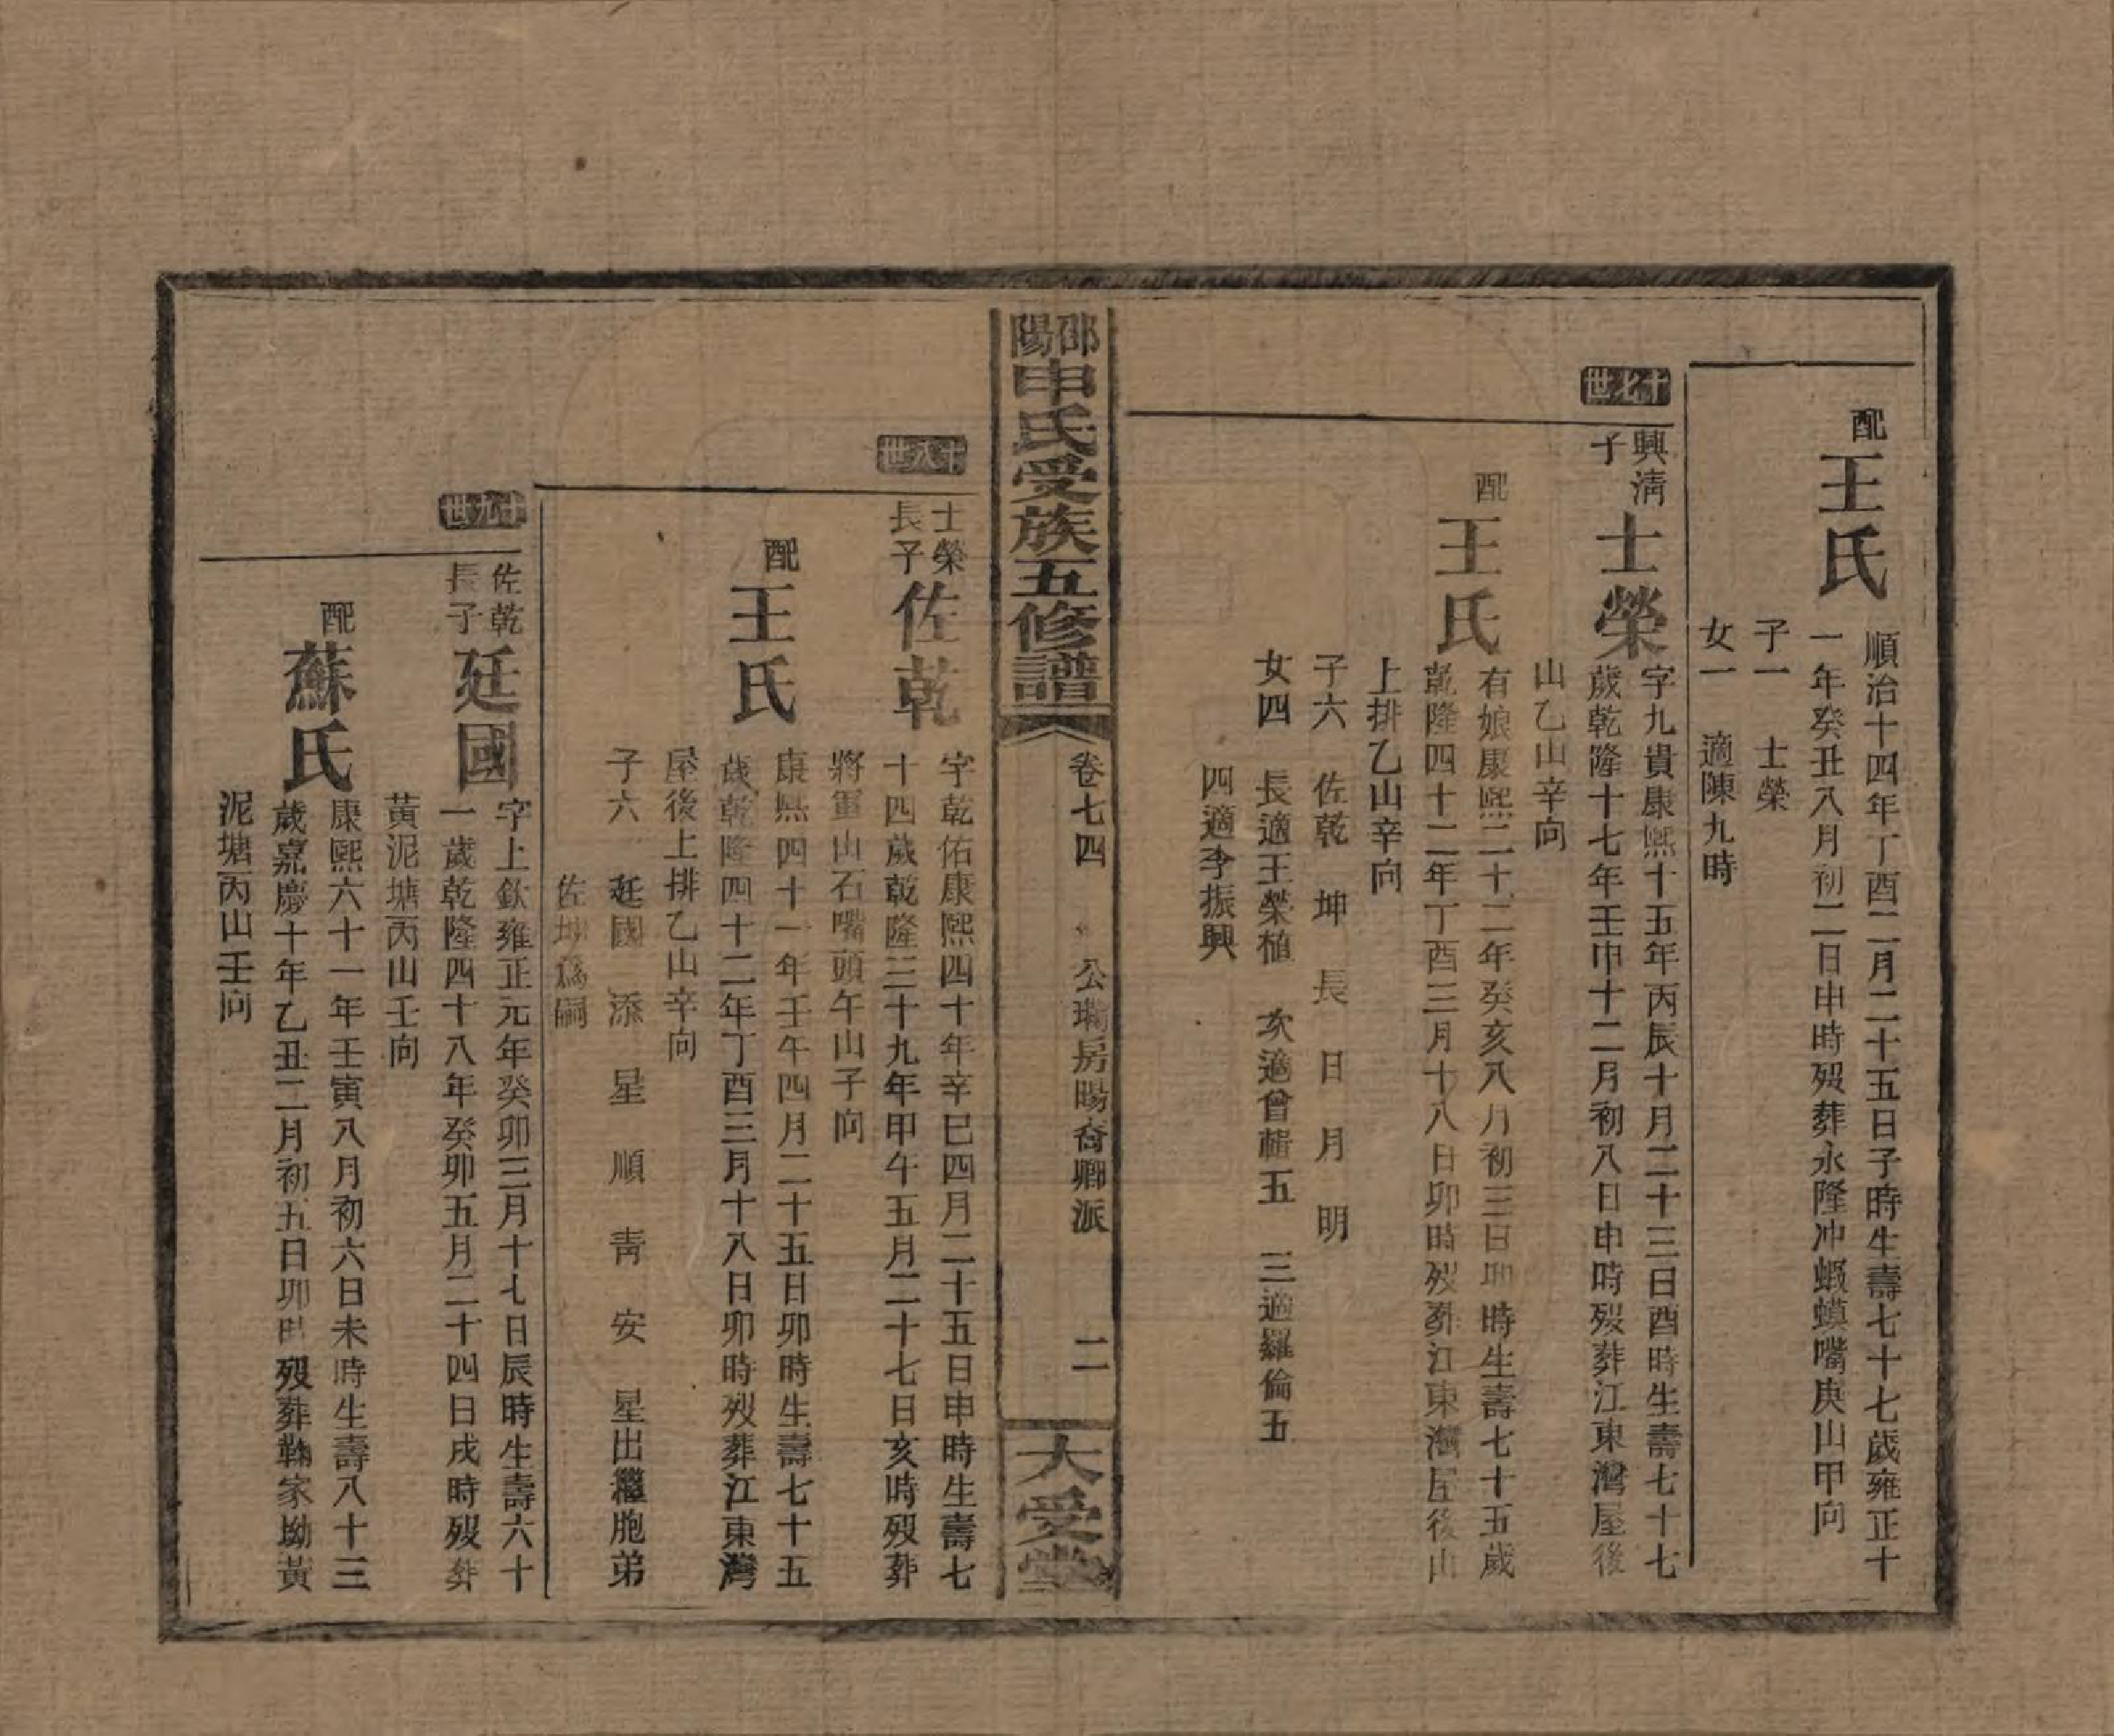 配
王氏
順治十四年丁酉二月二十五日子時生壽七十七歲雍正十
一年癸丑八月初二日申時歿葬永隆冲蝦蟆嘴庚山甲向
子一　士榮
女一　適陳九時
十七世
興淸
子
士榮
字九貴康熙十五年丙辰十月二十三日酉時生壽七十七
歲乾隆十七年壬申十二月初八日申時歿葬江東灣屋後
山乙山辛向
配
王氏
有娘康熙二十二年癸亥八月初三日卯時生壽七十五歲
乾隆四十二年丁酉三月十八日卯時歿葬江東灣屋後山
上排乙山辛向
子六　佐乾　坤　長　日　月　明
女四　長適王榮植　次適曾輯五　三適羅倫五
四適李振興
邵陽申氏受族五修譜
卷七四　公瓛房暘裔卿派
二
大受堂
十八世
士榮
長子
佐乾
字乾佑康熙四十年辛巳四月二十五日申時生壽七
十四歲乾隆三十九年甲午五月二十七日亥時歿葬
將軍山石嘴頭午山子向
配
王氏
康熙四十一年壬午四月二十五日卯時生壽七十五
歲乾隆四十二年丁酉三月十八日卯時歿葬江東灣
屋後上排乙山辛向
子六　廷國　添　星　順　靑　安　星出繼胞弟
佐坤爲嗣
十九世
佐乾
長子
廷國
字上欽雍正元年癸卯三月十七日辰時生壽六十
一歲乾隆四十八年癸卯五月二十四日戌時歿葬
黃泥塘丙山壬向
配
蘇氏
康熙六十一年壬寅八月初六日未時生壽八十三
歲嘉慶十年乙丑二月初五日卯時歿葬鞠家坳黃
泥塘丙山壬向